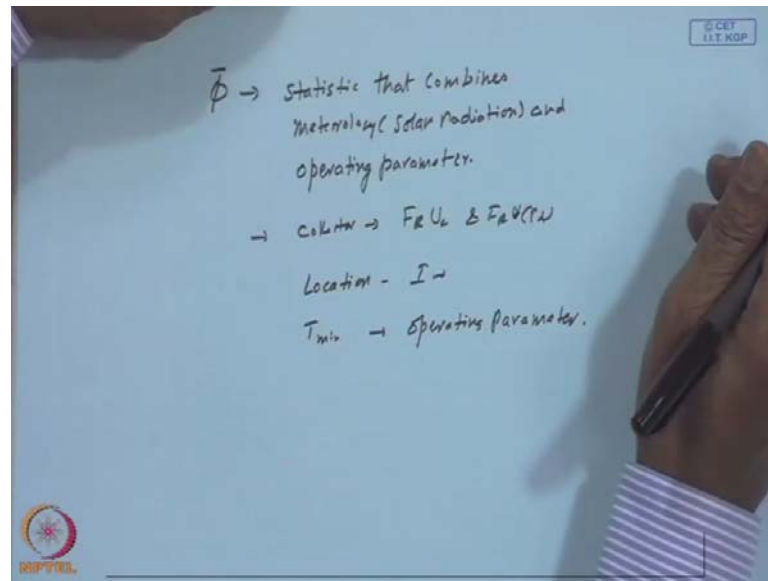 © CET
I.I.T. KGP
Φ̄ → Statistic that combines
meterology (Solar radiation) and
operating parameter.
→ Collector → F_R U_L & F_R
Location - I →
T_min → operating Parameter.
NPTEL